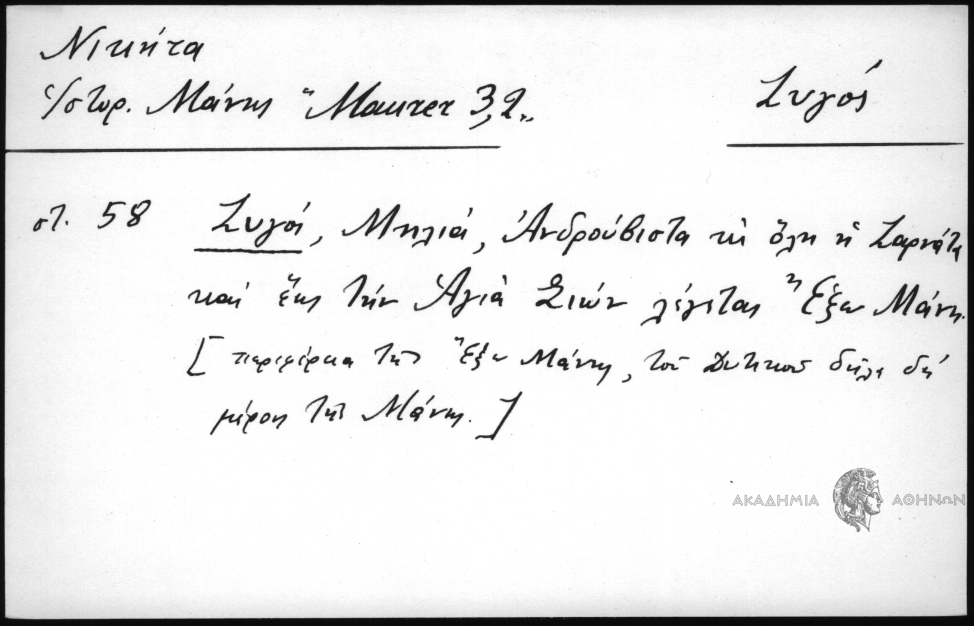 Νικήτα
ἱστορ. Μάνης "Maurer 3,2,,
Ζυγός
στ. 58 Ζυγός, Μηλιά, Ἀνδρούβιστα κι ὅλη ἡ Ζαρνάτα
καί ἕως τήν Ἁγιά Σιών λέγεται Ἔξω Μάνη.
[περιφέρεια τῆς Ἔξω Μάνης, τοῦ Δυτικοῦ δηλαδή
μέρους τῆς Μάνης.]
ΑΚΑΔΗΜΙΑ ΑΘΗΝΩΝ